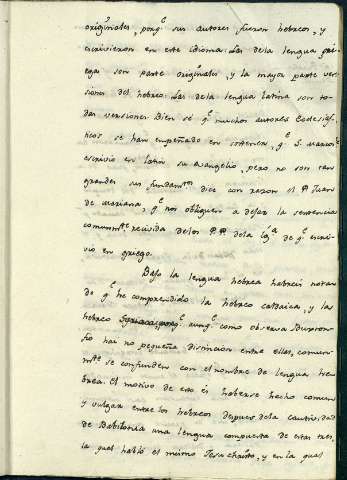 originales, porq.e sus autores fueron hebreos, y
escrivieron en este idioma. Las de la lengua gri-
ega son parte originales, y la mayor parte ver-
siones del hebreo. Las de la lengua latina son to-
das versiones. Bien sé q.e muchos autores Eclesiás-
ticos se han empeñado en sostener, q.e S. Marcos
escrivió en latin su evangelio, pero no son tan
grandes sus fundam.tos dice con razon el P. Juan
de Mariana, q.e nos obliguen a dejar la sentencia
comunm.te recivida de los P.P. de la Ig.a de q.e escri-
vió en griego.
Bajo la lengua hebrea habreis notan-
do q.e he comprendido la hebreo caldaica, y las
hebreo porq.e aunq.e como observa
hai no pequeña distincion entre ellas, comun-
m.te se confunden con el nombre de lengua he-
brea. El motivo de esto és haberse hecho comun
y vulgar entre los hebreos despues de la cautividad
de Babilonia una lengua compuesta de estas tres,
la qual habló el mismo Jesu christo, y en la qual